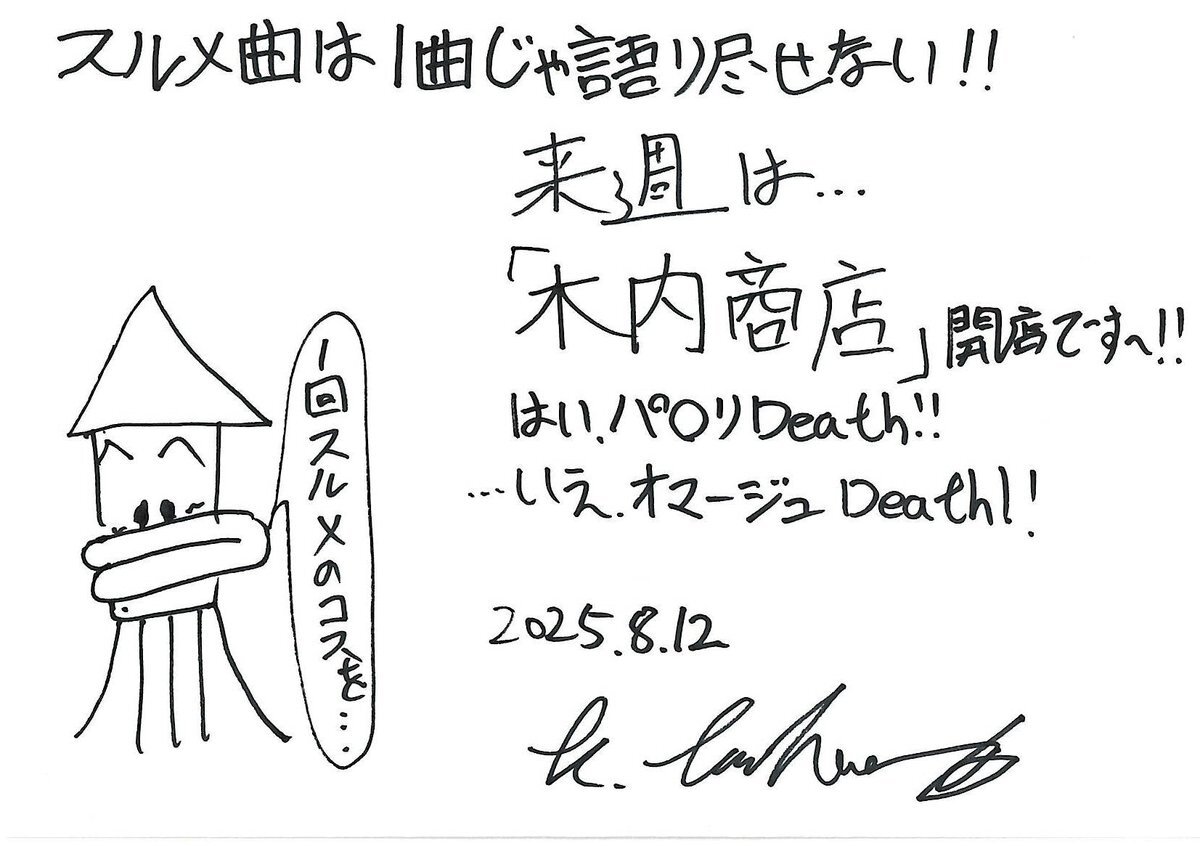 スルメ曲は1曲じゃ語り尽せない!!
来週は…
「木内商店」開店ですへ!!
はい、パ〇リDeath!!
…いえ、オマージュDeath!!
1回スルメのコスを…
2025.8.12